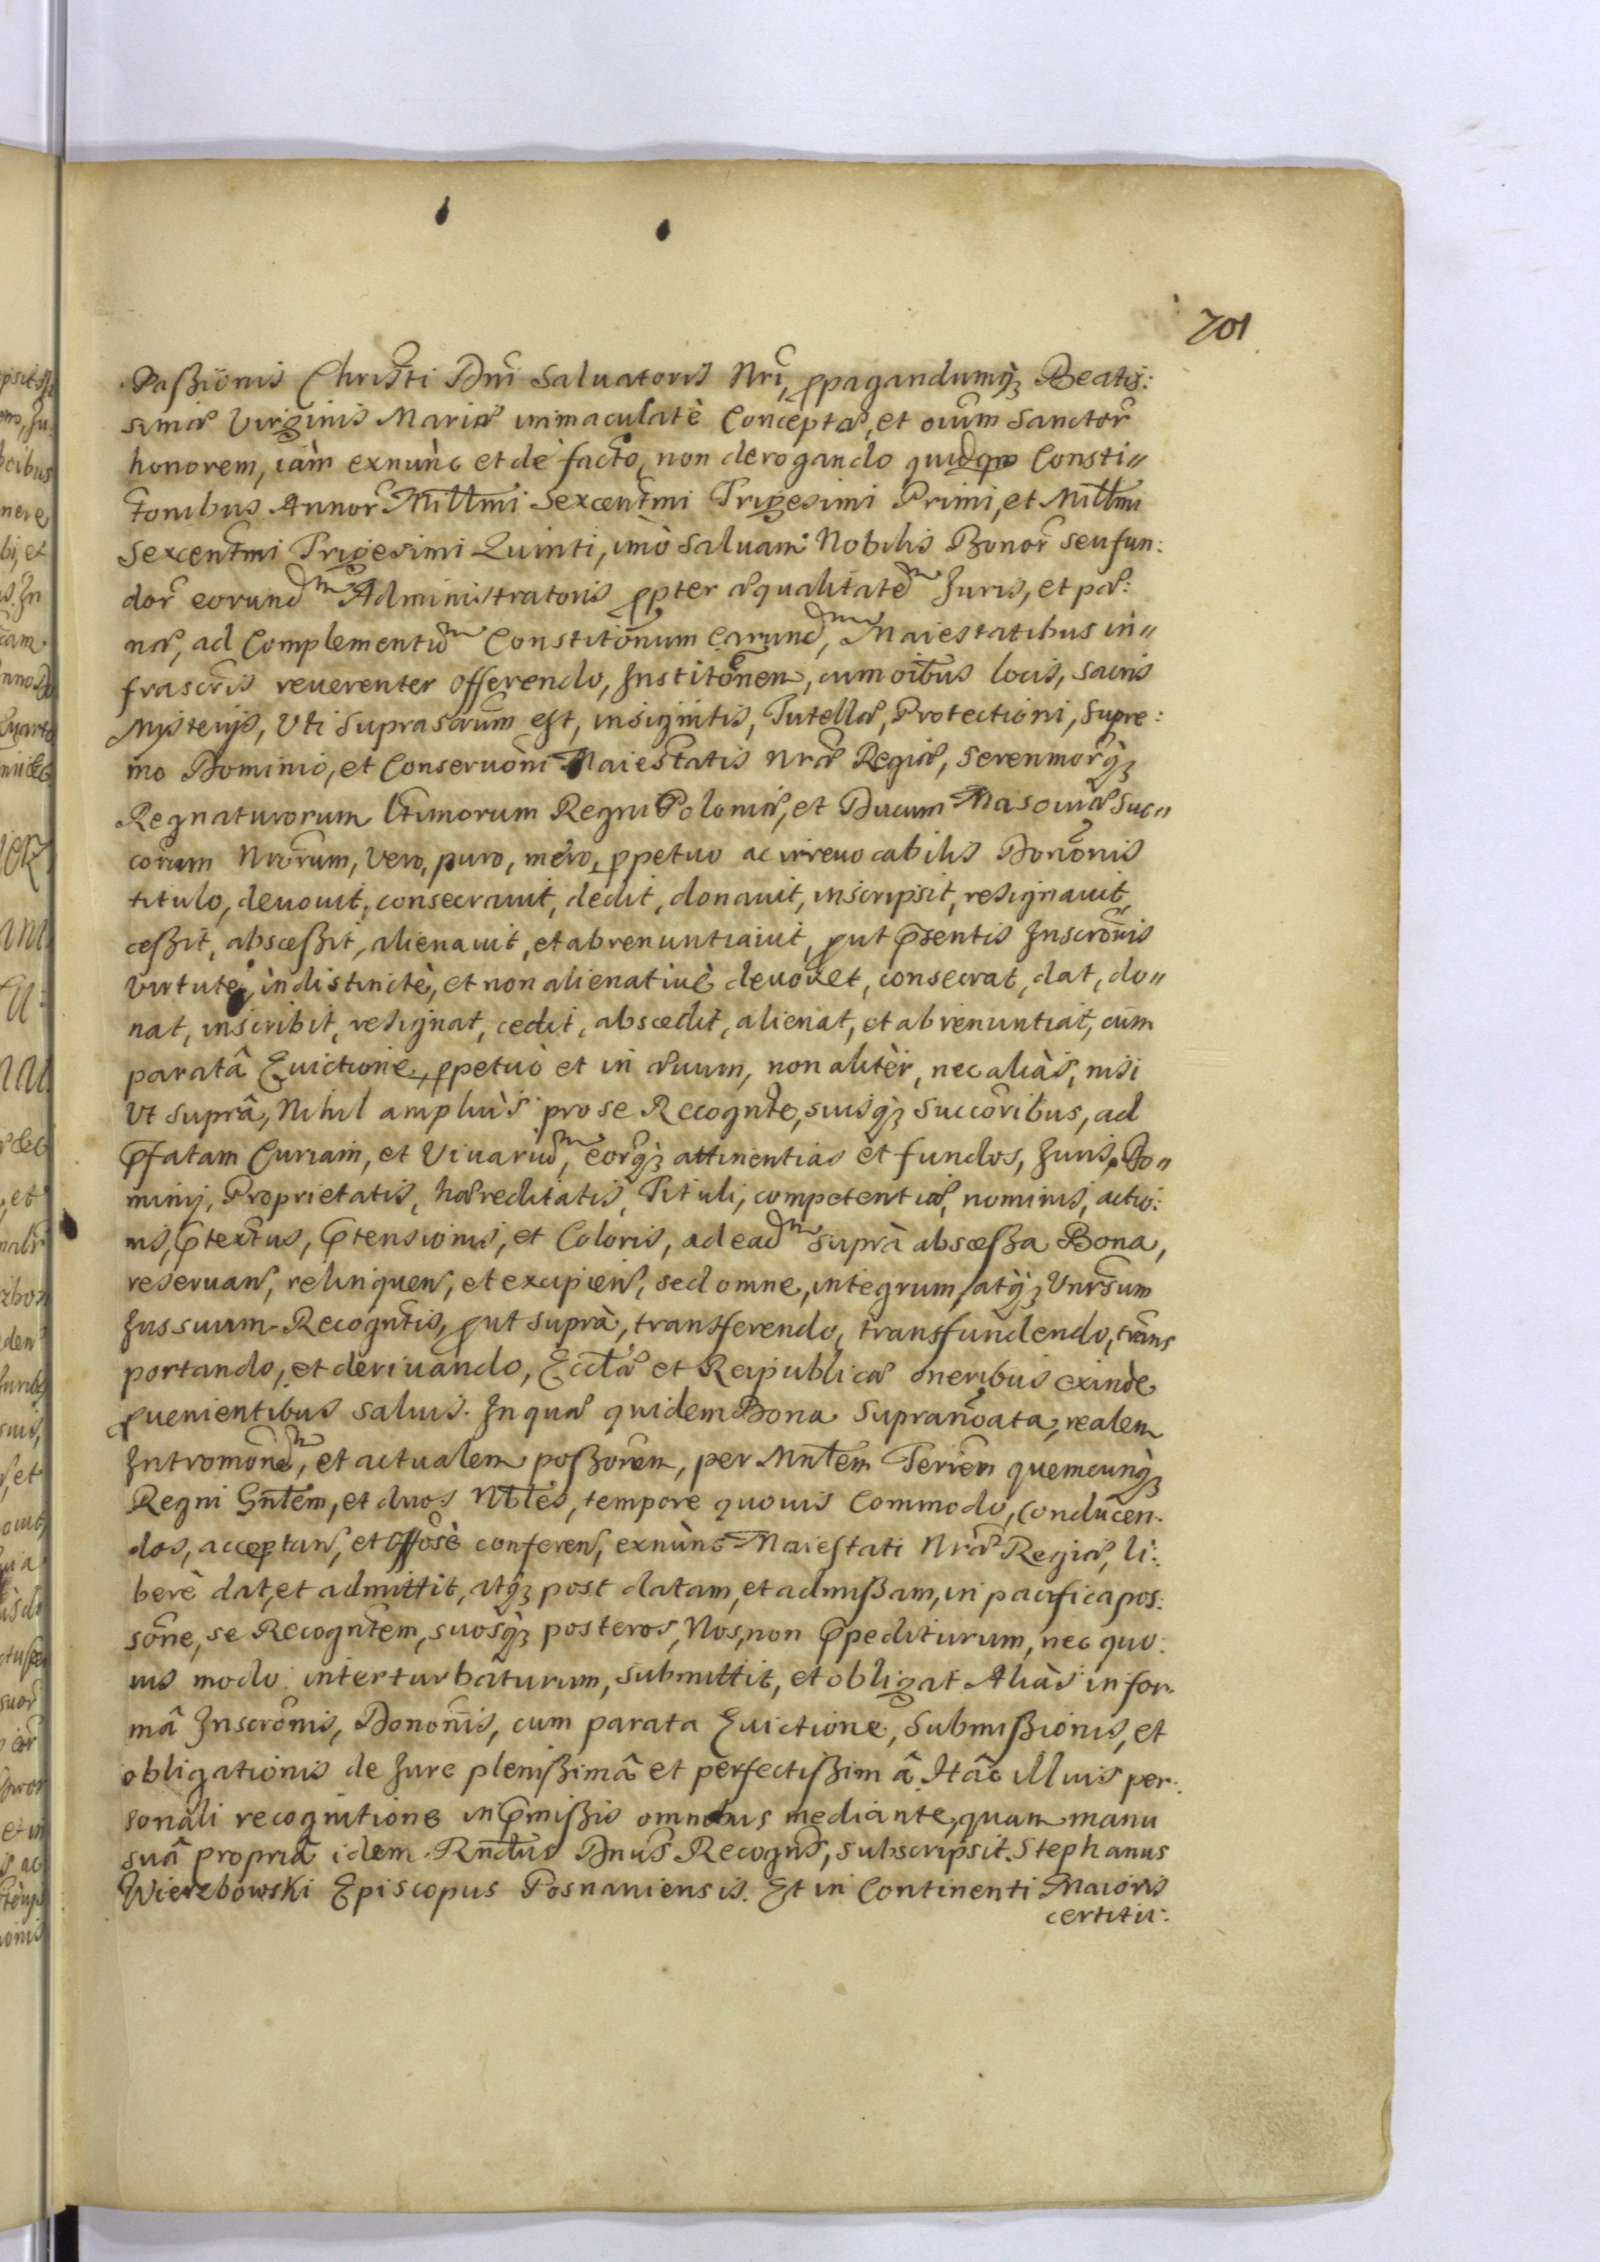 701
Paßionis Christi Dni Saluatoris Nri, ppagandumqȝ Beatis:
simæ Virginis Mariæ immaculatè Conceptæ, et oium Sanctor
honorem, iàm exnùnc et de facto, non derogando quidqm Consti"
tonibus Annor Millmi Sexcentmi Trigesimi Primi, et Millmi
Sexcentmi Trigesimi Quinti, imò saluam Nobilis Bonor seu fun:
dor eorundm Administratoris ppter æqualitatem Juris, et pæ:
næ, ad Complementum Constitonum Earundm, Maiestatibus in"
frascris reuerenter offerendo, Institonem, cum oibus locis, sacris
Mysterijs, Vti suprascrum est, insignitis, Tutellæ, Protectioni, Supre:
mo Dominio, et Conseruoni Maiestatis Nræ Regiæ, Serenmorqȝ
Regnaturorum Ltimorum Regni Poloniæ, et Ducum Masouiæ Suc"
corum Nrorum, Vero, puro, mero, ppetuo ac irreuocabilis Dononis
titulo, deuouit, consecrauit, dedit, donauit, inscripsit, resignauit,
ceßit, absceßit, alienauit, et abrenuntiauit, put psentis Inscronis
virtute, indistinctè, et non alienatiuè deuouet, consecrat, dat, do"
nat, inscribit, resignat, cedit, abscedit, alienat, et abrenuntiat, cum
paratâ Euictione, ppetuò et in æuum, non alitèr, nec aliàs, nisi
Vt suprâ, Nihil ampliùs pro se Recognte, suisqȝ Succoribus, ad
pfatam Curiam, et Viuarium, eorqȝ attinentias et fundos, Juris, Do"
minij, Proprietatis, hæreditatis, Tituli, competentiæ, nominis, actio:
nis, ptextus, ptensionis, et Coloris, ad eadm suprà absceßa Bona,
reseruans, relinquens, et excipiens, sed omne, integrum, atqȝ Vnrsum
Jus suum Recogntis, put suprà, transferendo, transfundendo, trans
portando, et deriuando, Ecclæ et Reipublicæ oneribus exinde
puenientibus saluis. In quæ quidem Bona Supranoata, realem
Intromonem, et actualem poßorem, per Mntem Terrem quemcunqȝ
Regni Gntem, et duos Nbles, tempore quouis Commodo, Conducen.
dos, acceptans, et offosè conferens, exnùnc Maiestati Nræ Regiæ, li:
berè dat, et admittit, atqȝ post datam, et admißam, in pacifica pos:
sone, se Recogntem, suosqȝ posteros, Nos, non ppediturum, nec quo:
uis modo interturbaturum, submittit, et obligat Aliàs in for.
mâ Inscronis, Dononis, cum parata Euictione, Submißionis, et
obligationis de Jure plenißimâ et perfectißimâ. Hâc illius per:
sonali recognitione in pmißis omnibus mediante, quam manu
suâ propriâ idem Rndus Dnus Recogns, subscripsit. Stephanus
Wierzbowski Episcopus Posnaniensis. Et in Continenti Maioris
certitu: